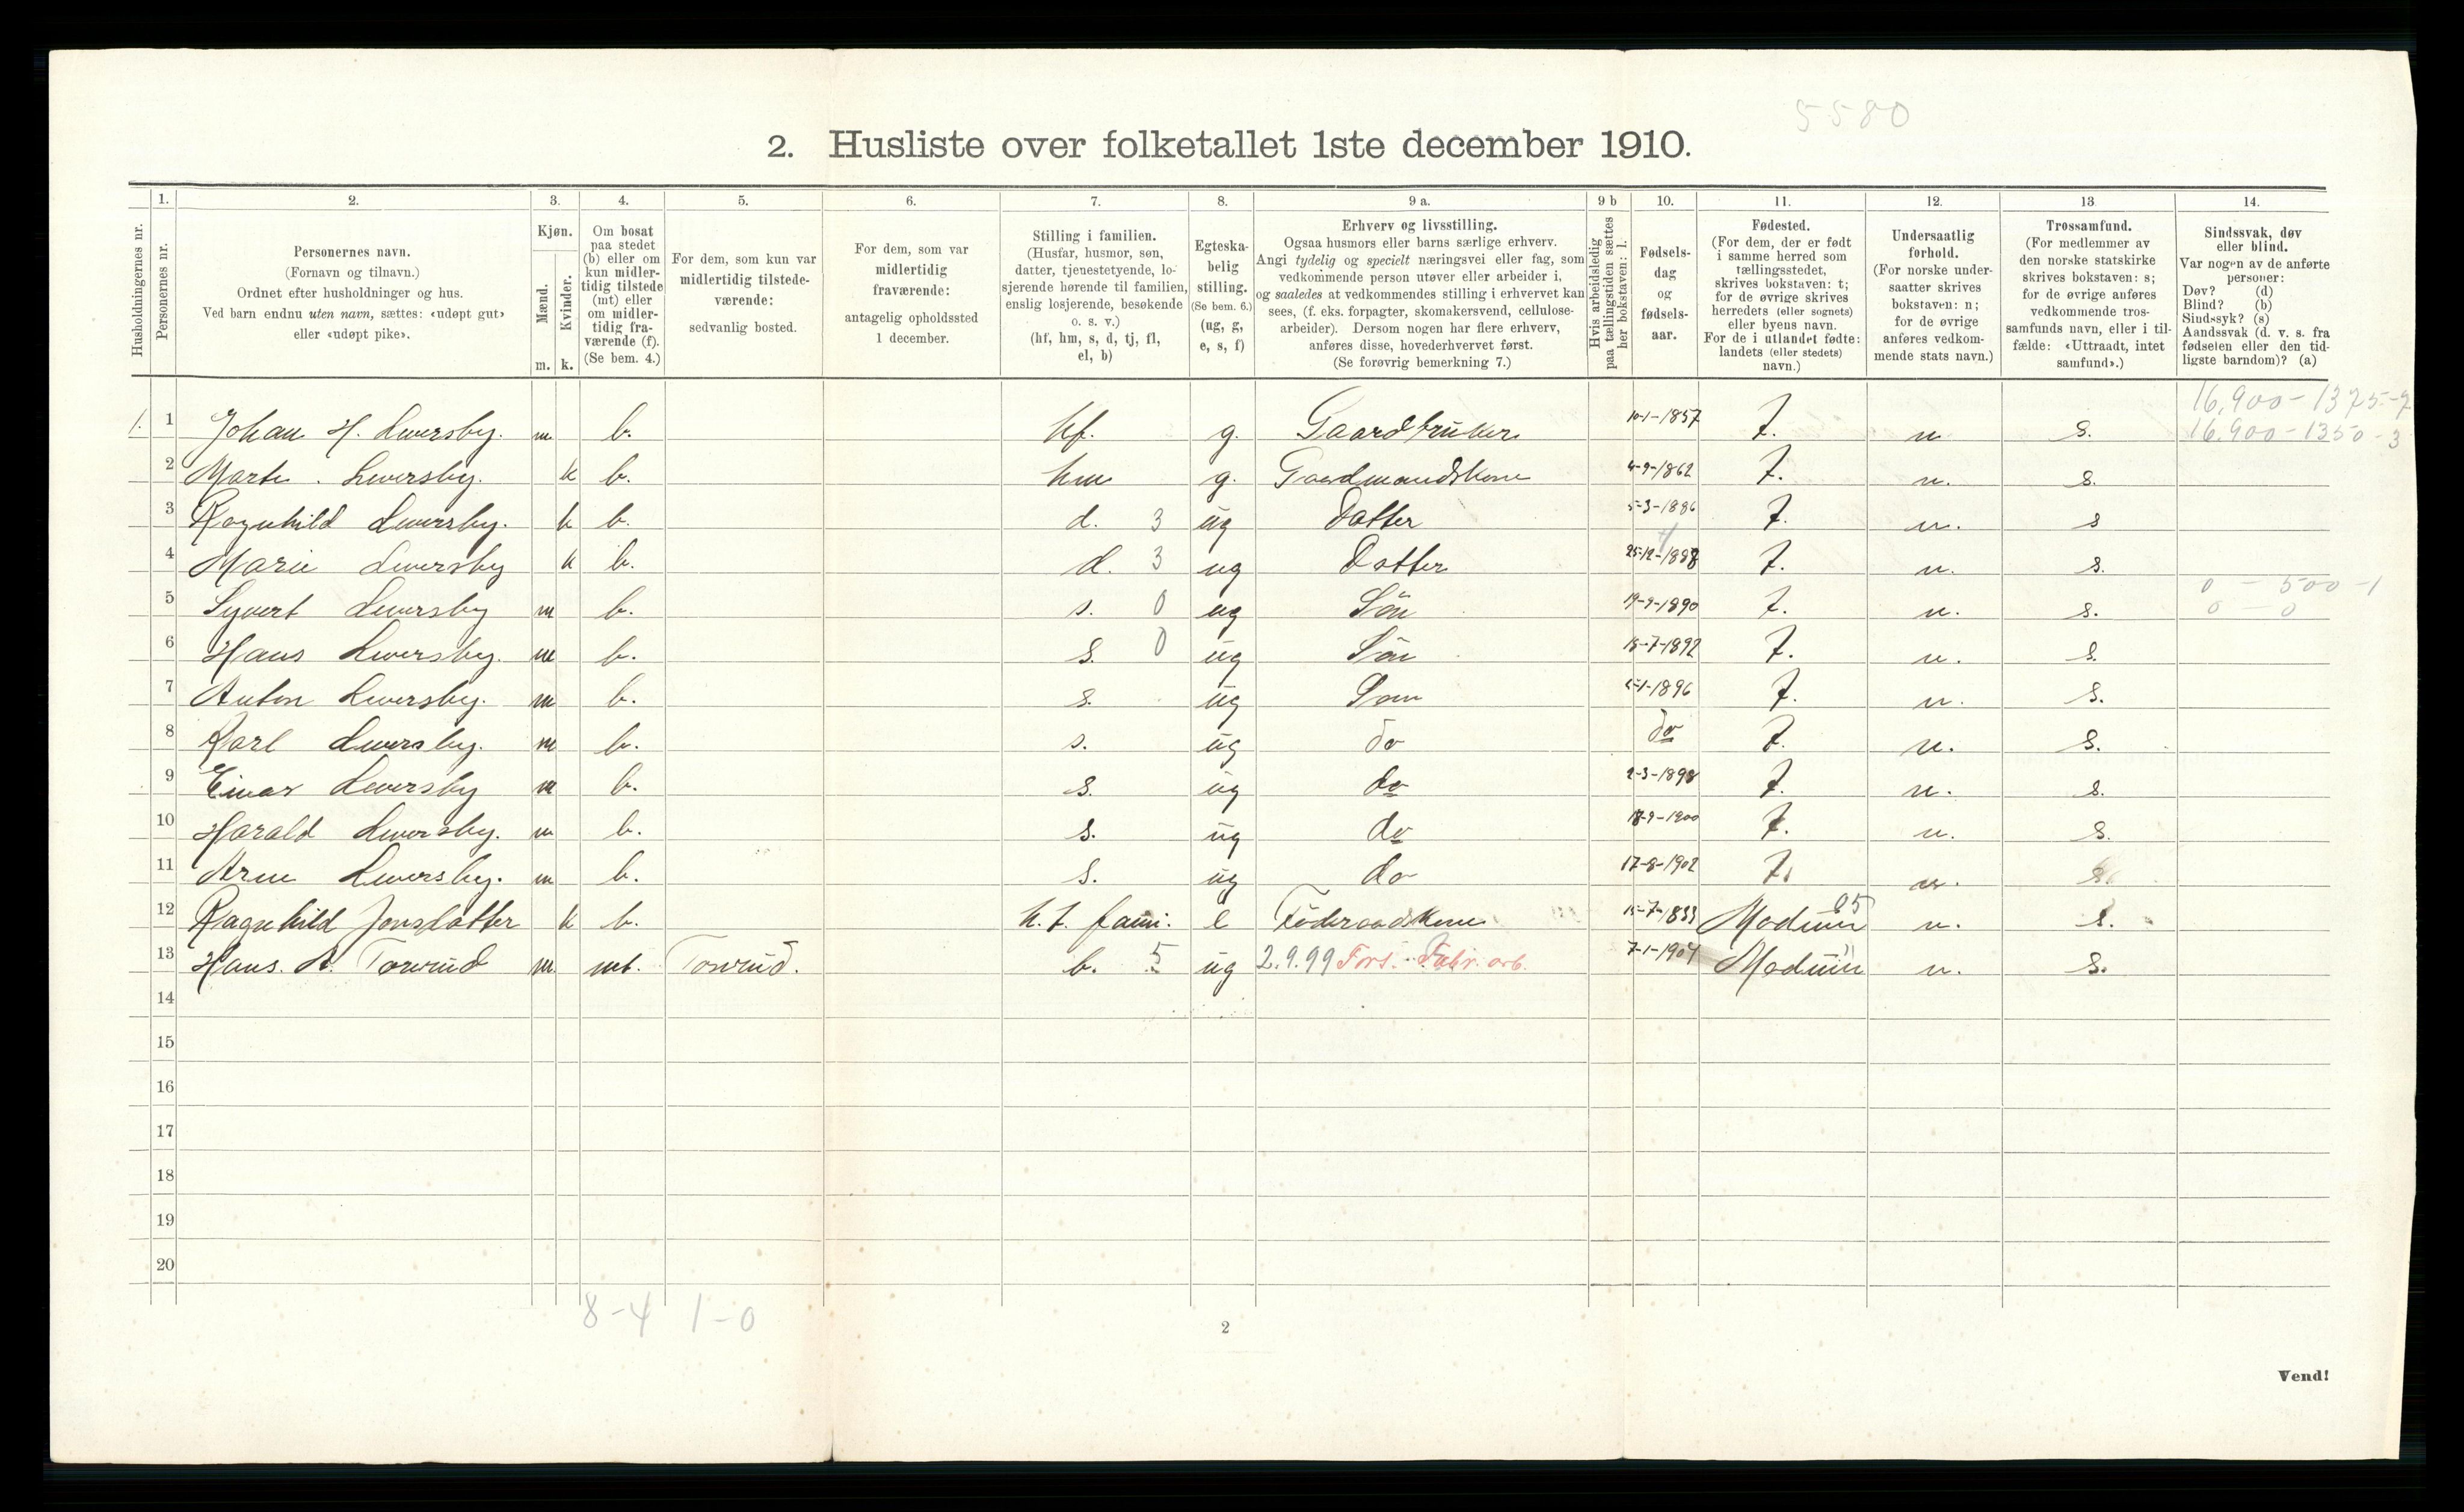 5580
2. Husliste over folketallet 1ste december 1910.
Husholdningernes nr.
1.
Personernes nr.
2.
Personernes navn.
(Fornavn og tilnavn.)
Ordnet efter husholdninger og hus.
Ved barn endnu uten navn, sættes: «udøpt gut»
eller «udøpt pike».
3.
Kjøn.
Mænd.
Kvinder.
m. k.
4.
Om bosat
paa stedet
(b) eller om
kun midler-
tidig tilstede
(mt) eller
om midler-
tidig fra-
værende (f).
(Se bem. 4.)
5.
For dem, som kun var
midlertidig tilstede-
værende:
sedvanlig bosted.
6.
For dem, som var
midlertidig
fraværende:
antagelig opholdssted
1 december.
7.
Stilling i familien.
(Husfar, husmor, søn,
datter, tjenestetyende, lo-
sjerende hørende til familien,
enslig losjerende, besøkende
o. s. v.)
(hf, hm, s, d, tj, fl,
el, b)
8.
Egteska-
belig
stilling.
(Se bem. 6.)
(ug, g,
e, s, f)
9 a.
Erhverv og livsstilling.
Ogsaa husmors eller barns særlige erhverv.
Angi tydelig og specielt næringsvei eller fag, som
vedkommende person utøver eller arbeider i,
og saaledes at vedkommendes stilling i erhvervet kan
sees, (f. eks. forpagter, skomakersvend, cellulose-
arbeider). Dersom nogen har flere erhverv,
anføres disse, hovederhvervet først.
(Se forøvrig bemerkning 7.)
9 b
Hvis arbeidsledig
paa tællingstiden sættes
her bokstaven: l.
10.
Fødsels-
dag
og
fødsels-
aar.
11.
Fødested.
(For dem, der er født
i samme herred som
tællingsstedet,
skrives bokstaven: t;
for de øvrige skrives
herredets (eller sognets)
eller byens navn.
For de i utlandet fødte:
landets (eller stedets)
navn.)
12.
Undersaatlig
forhold.
(For norske under-
saatter skrives
bokstaven: n;
for de øvrige
anføres vedkom-
mende stats navn.)
13
Trossamfund.
(For medlemmer av
den norske statskirke
skrives bokstaven: s;
for de øvrige anføres
vedkommende tros-
samfunds navn, eller i til-
fælde: «Uttraadt, intet
samfund».)
14.
Sindssvak, døv
eller blind.
Var nogen av de anførte
personer:
Døv? (d)
Blind? (b)
Sindssyk? (s)
Aandssvak (d. v. s. fra
fødselen eller den tid-
ligste barndom)? (a)
16,900-1375-7
1. 1 Johan H. Lwersby. m b. hf. g. Gaardbruker 10-1-1857 t. n s. 16.900-1350-3
2 Marte. Lwersby. k b. hm g. Gaardmandskone 4-9-1862 t. n. s.
3 Ragnhild Lwersby. k b. d. 3 ug Datter 5-3-1886 t. n. s
4 Marie Lwersby k b. d. 3 ug Datter 25-12-1888 t. n. s.
0 - 500-1
5 Syvert Lwersby m b. s. 0 ug Sön 19-9-1890 t. n. s. 0 - 0
6 Hans Lwersby. m b. s. 0 ug Sön 15-7-1892 t. n. s.
7 Anton Lwersby. m b. s. ug Søn 5-1-1896 t. n. s.
8 Karl Lwersby. m b. s. ug do do t. n. s.
9 Einar Lwersby m b. s. ug do 2-3-1898 t. n. s.
10 Harald Lwersby. m b. s. ug do 18-9-1900 t. n. s.
11 Arne Lwersby. m b. s. ug do 17-8-1902 t. n. s.
12 Ragnhild Jonsdatter k b. h. t. fami. e Föderaadskone 15-7-1833 Modum n. s.
13 Hans. A. Torvrud m. mt. Torvrud. b. 5 ug 2.9.99 Fors. Fabr. arb. 7-1-1904 Modum n. s.
14
15
16
17
18
19
20
8-4 1-0
2
Vend!